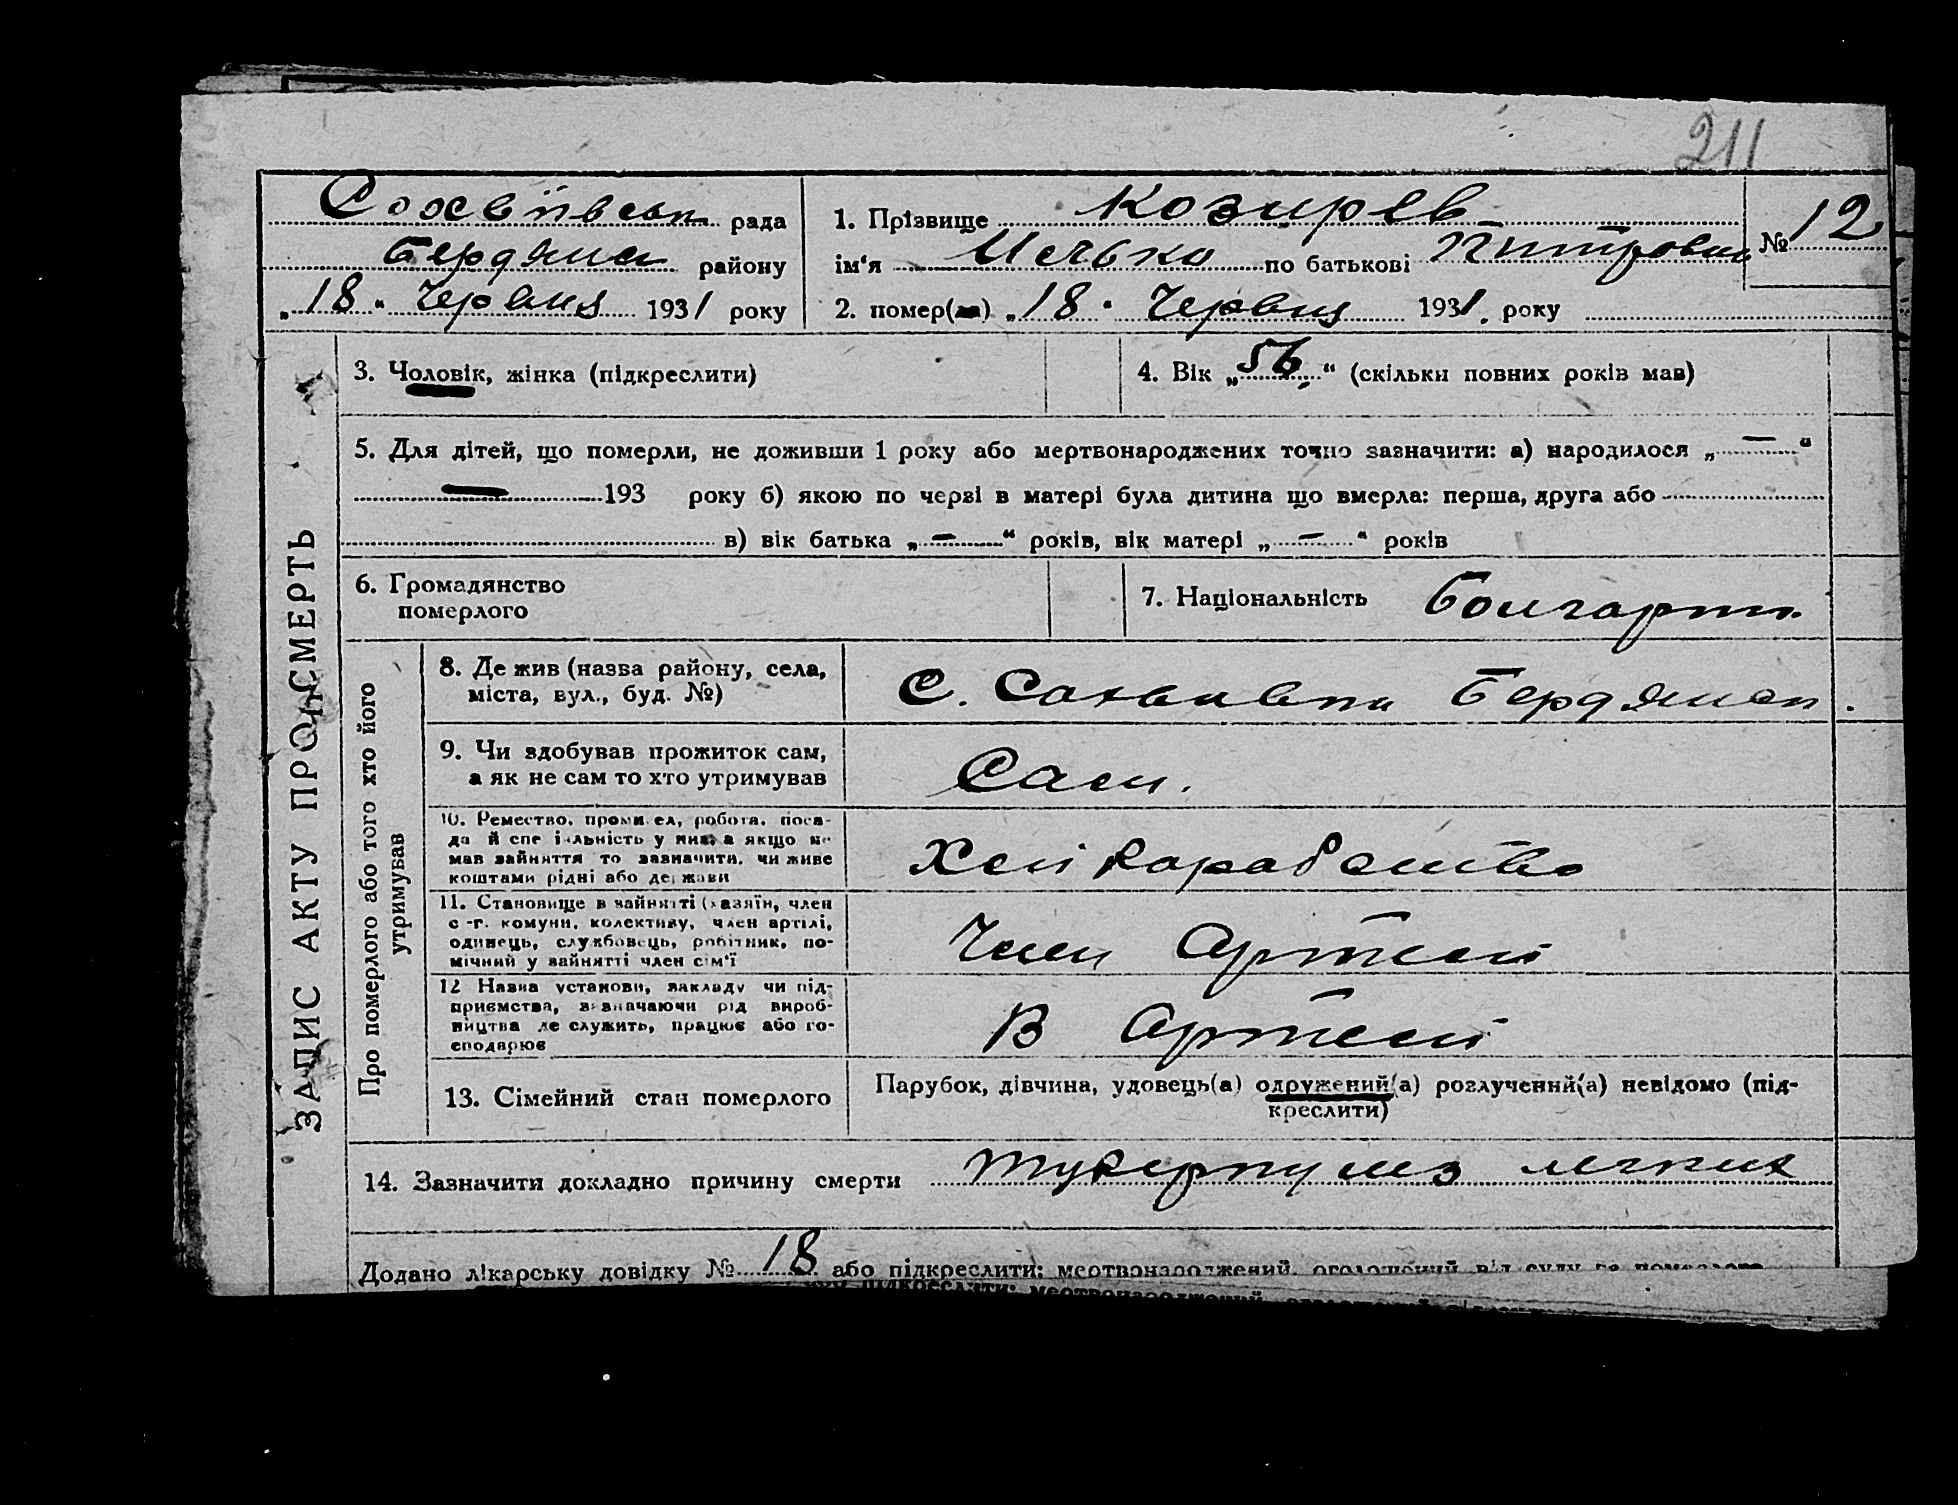 211
Софіївськ рада
Бердянск району
„18" Червня 1931 року
1. Прізвище Козирєв
ім'я по батькові Питрович
№ 12
2. помер(ла) „18" Червня 1931 року
3. Чоловік, жінка (підкреслити)
4. Вік „56" (скільки повних років мав)
5. Для дітей, що померли, не доживши 1 року або мертвонароджених точно зазначити: а) народилося „—"
— 193 року б) якою по черзі в матері була дитина що вмерла: перша, друга або
в) вік батька „—" років, вік матері „—" років
6. Громадянство
померлого
7. Національність Болгарин
ЗАПИС АКТУ ПРО СМЕРТЬ
Про померлого або того хто його
утримував
8. Де жив (назва району, села,
міста, вул., буд. №)
С. Бердянск.
9. Чи здобував прожиток сам,
а як не сам то хто утримував
Сам.
10. Ремество, промисел, робота, поса-
да й спеціяльність у них, а якщо не
мав зайняття то зазначити, чи живе
коштами рідні або держави
Хліборобство
11. Становище в зайнятті (хазяїн, член
с.-г. комуни, колективу, член артілі,
одинець, службовець, робітник, по-
мічний у зайнятті член сім'ї
Член Артелі
12 Назва установи, закладу чи під-
приємства, зазначаючи рід вироб-
ництва де служить, працює або го-
сподарює
В Артелі
13. Сімейний стан померлого
Парубок, дівчина, удовець(а) одружений(а) розлучений(а) невідомо (під-
креслити)
14. Зазначити докладно причину смерти туберкульоз легких
Додано лікарську довідку № 18 або підкреслити: мертвонароджений, оголошений від суду за померлого